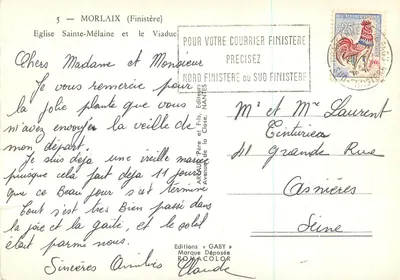 5 — MORLAIX (Finistère)
Eglise Sainte-Mélaine et le Viaduc
Chers Madame et Monsieur
Je vous remercie pour
la jolie plante que vous
m'avez envoyée la veille de
mon départ.
Je suis deja une vieille
puisque cela fait deja 11 jours
que ce beau jour s'est terminé
Tout s'est très bien passé dans
la joie et la gaité, et le soleil
était parmi nous.
Sincères Amitiés Claude
POUR VOTRE COURRIER FINISTERE
PRECISEZ
NORD FINISTERE OU SUD FINISTERE
ARTAUD Père et Fils, Editeurs
Avenue de la Close, NANTES
Mr et Mme Laurent
Teinturier
41 Grande Rue
Asnières
Seine
Editions « GABY »
Marque Déposée
ROMACOLOR